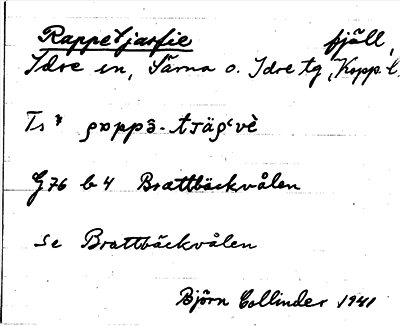 Rappetjasfie fjäll,
Idre sn, Särna o. Idre tg, Kopp. l.
Ts
G 76 b 4 Brattbäckvålen
se Brattbäckvålen
Björn Collinder 1941